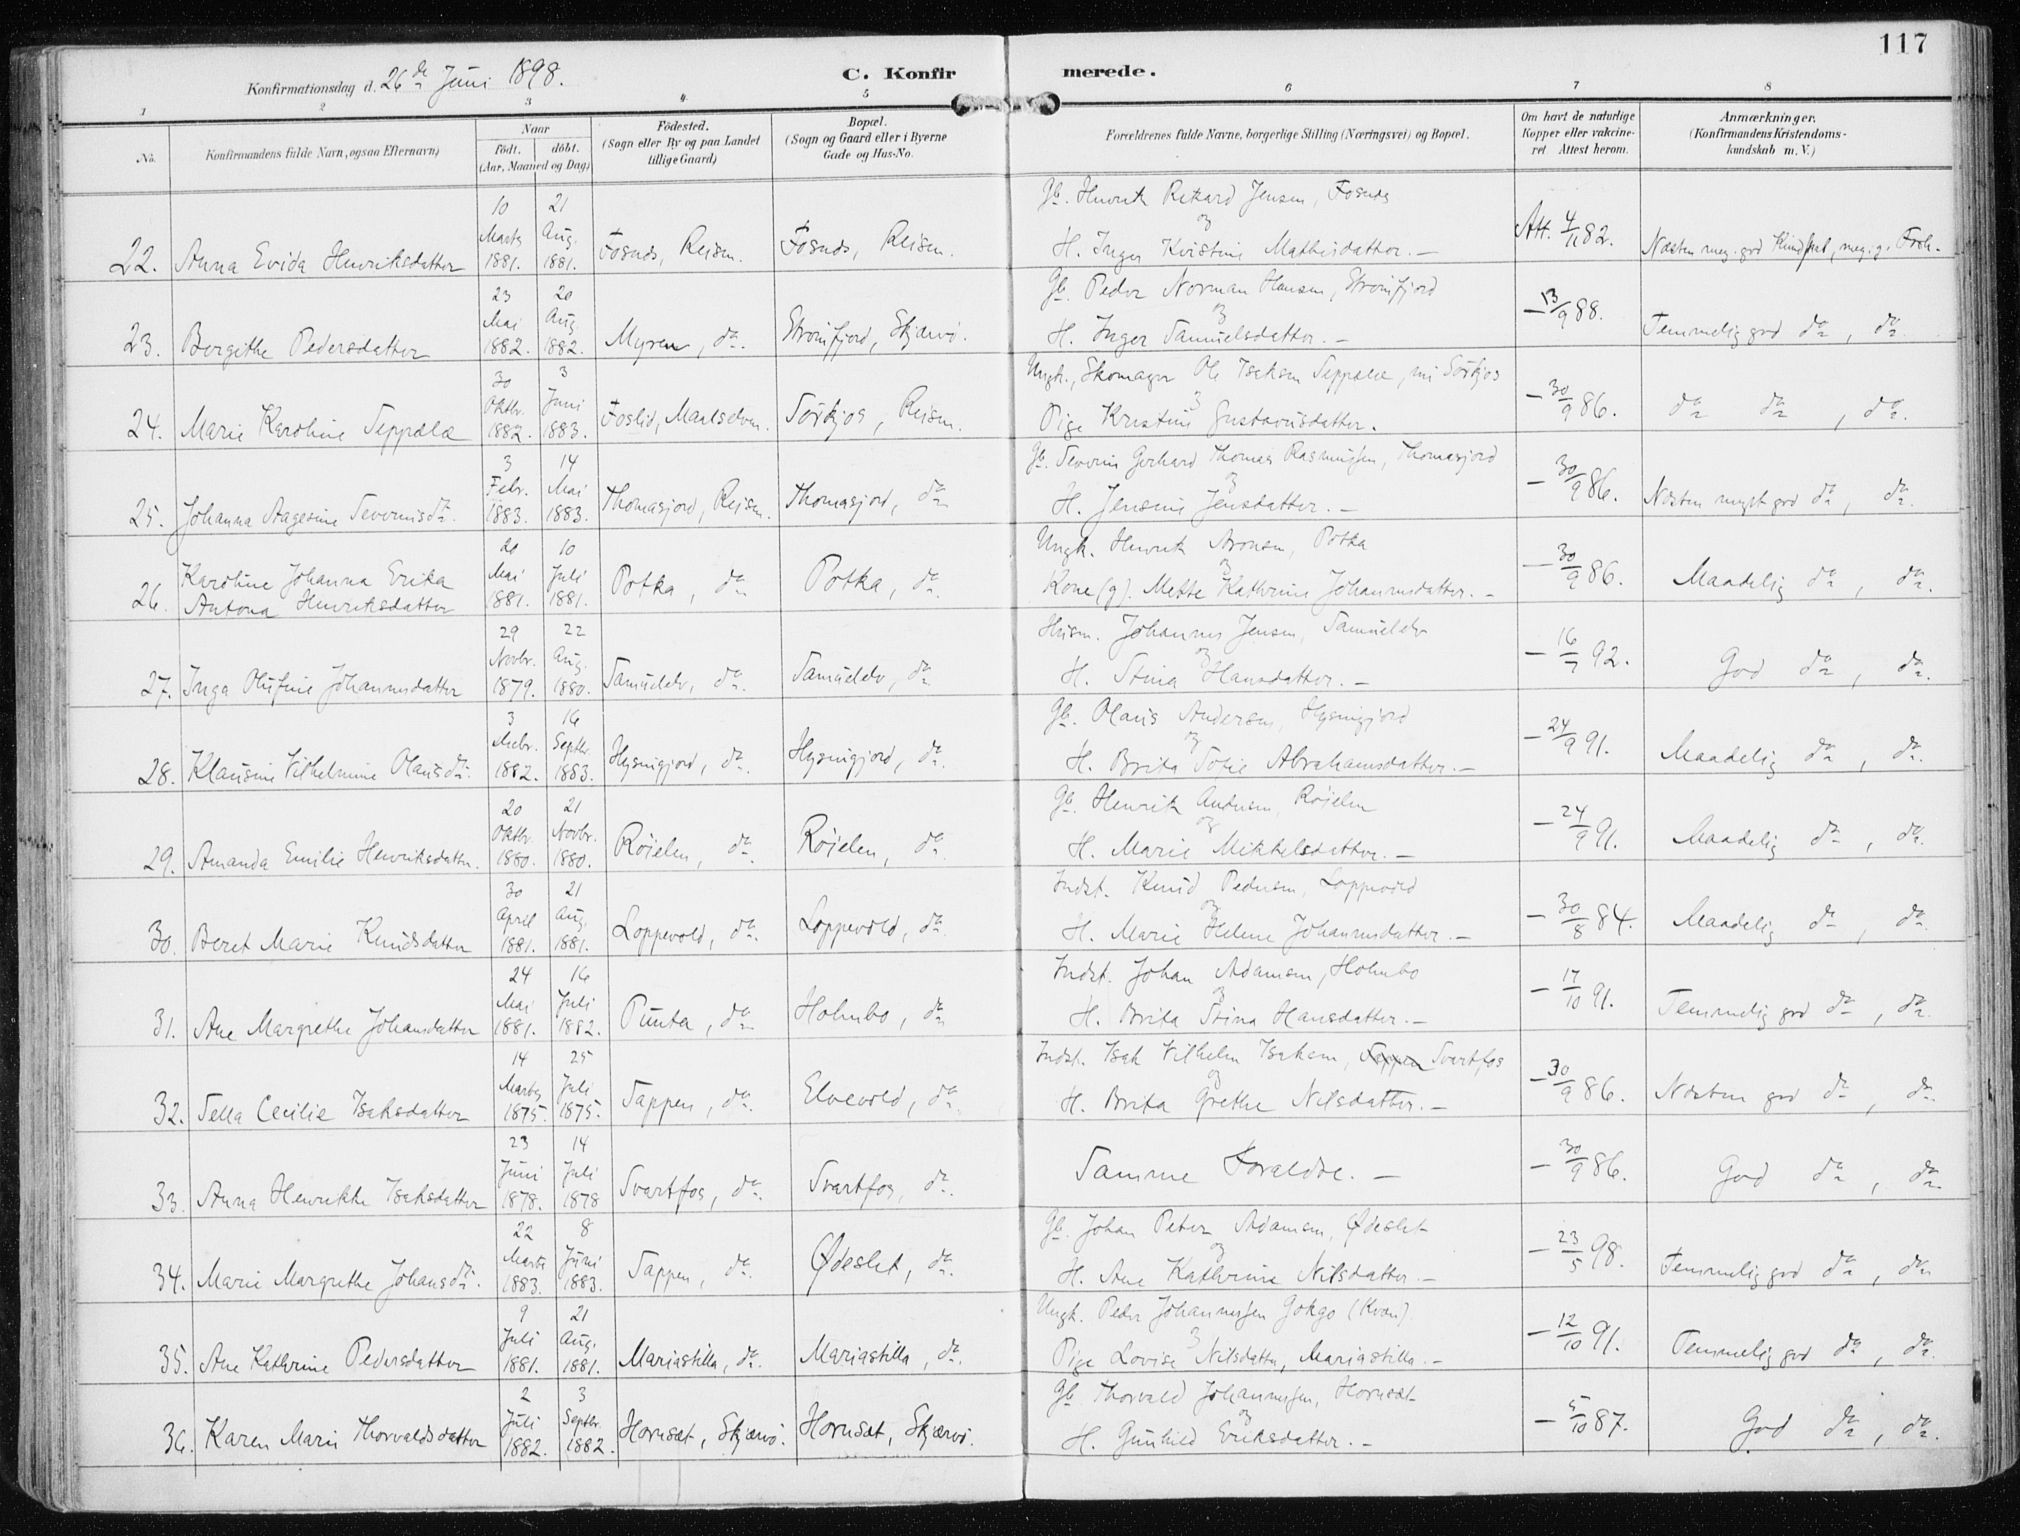 117
Konfirmationsdag d. 26de Juni 1898.
C. Konfirmerede.
1 2 3 4 5 6 7 8
No.
Konfirmandens fulde Navn, ogsaa Efternavn)
Naar
födt. döbt.
(Aar, Maaned og Dag)
Födested.
(Sogn eller By og paa Landet
tillige Gaard)
Bopæl.
(Sogn og Gaard eller i Byerne
Gade og Hus-No.
Forældrenes fulde Navne, borgerlige Stilling (Næringsvei) og Bopæl.
Om havt de naturlige
Kopper eller vakcine-
ret Attest herom.
Anmærkninger.
(Konfirmandens Kristendoms-
kundskab m. V.)
22. Anna Evida Henriksdatter 10 Marts 1881. 21 Aug. 1881. Fosnds, Reisen. Fosnds, Reisen.
Gb. Henrik Rikard Jensen, Fosnds
og
H. Inger Kristine Mathisdatter. – Att. 4/11 82. Næsten meg. god Kundskab, meg. g. Forh.
23. Bergithe Pedersdatter 23 Mai 1882. 20 Aug. 1882. Myren, do. Strömfjord, Skjærvö.
Gb. Peder Norman Hansen, Strömfjord
og
H. Inger Samuelsdatter. – – 13/9 88. Temmelig god do, do.
24. Marie Karoline Seppælæ 30 Oktbr. 1882. 3 Juni 1883. Foslid, Maalselven. Sörkjos, Reisen.
Ungk., Skomager Ole Isaksen Seppælæ, nu Sörkjos
og
Pige Kristine Gustavusdatter. – 30/9 86. do do, do.
25. Johanna Aagesine Severinsdr. 3 Febr. 1883. 14 Mai 1883. Thomasjord, Reisen. Thomasjord, do
Gb. Severin Gerhard Thomas Rasmussen, Thomasjord
og
H. Jensine Jensdatter. – – 30/9 86. Næsten meget god do, do.
26. Karoline Johanna Erika
Antona Henriksdatter 20 Mai 1881. 10 Juli 1881. Potka, do Potka, do.
Ungk. Henrik Aronsen, Potka
og
Kone (g). Mette Kathrine Johannesdatter. – – 30/9 86. Maadelig do, do.
27. Inga Olufine Johannesdatter 29 Novbr. 1879. 22 Aug. 1880. Samuelelv, do. Samuelelv, do
Husm. Johannes Jensen, Samuelelv
og
H. Stina Hansdatter. – – 16/7 92. God do, do.
28. Klausine Vilhelmine Olausdr. 3 Decbr. 1882. 16 Septbr. 1883. Hysingjord, do. Hysingjord, do.
Gb. Olaus Andersen, Hysingjord
og
H. Brita Sofie Abrahamsdatter. – – 24/9 91. Maadelig do, do.
29. Amanda Emilie Henriksdatter. 20 Oktbr. 1880. 21 Novbr. 1880. Röielen, do. Röielen, do.
Gb. Henrik Andersen, Röielen
og
H. Marie Mikkelsdatter. – – 24/9 91. Maadelig do, do.
30. Beret Marie Knudsdatter 30 April 1881. 21 Aug. 1881. Loppevold, do. Loppevold, do.
Indst. Knud Pedersen, Loppevold
og
H. Marie Helene Johannesdatter. – – 30/8 84. Maadelig do, do.
31. Ane Margrethe Johansdatter 24 Mai 1881. 16 Juli 1882. Punta, do Holmbo, do
Indst. Johan Adamsen, Holmbo
og
H. Brita Stina Hansdatter. – – 17/10 91. Temmelig god do, do.
32. Sella Cecilie Isaksdatter 14 Marts 1875. 25 Juli 1875. Sappen, do. Elvevold, do.
Indst. Isak Vilhelm Isaksen, Sappen Svartfos
og
H. Brita Grethe Nilsdatter. – – 30/9 86. Næsten god do, do.
33. Anna Henrikke Isaksdatter 23 Juni 1878. 14 Juli 1878 Svartfos, do. Svartfos, do.
Samme Forældre. – – 30/9 86. God do, do
34. Marie Margrethe Johansdr. 22 Marts 1883. 8 Juni 1883. Sappen, do. Ødeslet, do.
Gb. Johan Peter Adamsen, Ødeslet
og
H. Ane Kathrine Nilsdatter. – – 23/5 98. Temmelig god do, do
35. Ane Kathrine Pedersdatter 9 Juli 1881. 21 Aug. 1881. Mariastilla, do. Mariastilla, do.
Ungk. Peder Johannessen Gokgo (Kvæn)
og
Pige Lovise Nilsdatter, Mariastilla. – – 12/10 91. Temmelig god do, do.
36. Karen Marie Thorvaldsdatter 2 Juli 1882. 3 Septbr. 1882. Hornsæt, Skjærvö. Hornsæt, Skjærvö.
Gb Thorvald Johannessen, Hornsæt
og
H. Gunhild Eriksdatter. – – 5/10 87. God do, do.